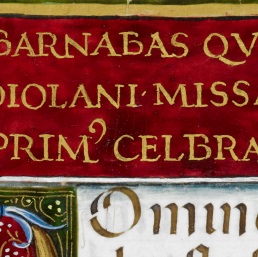 BARNABAS QV
DIOLANI · MISSA
PRIMꝰ CELBRA
Omne